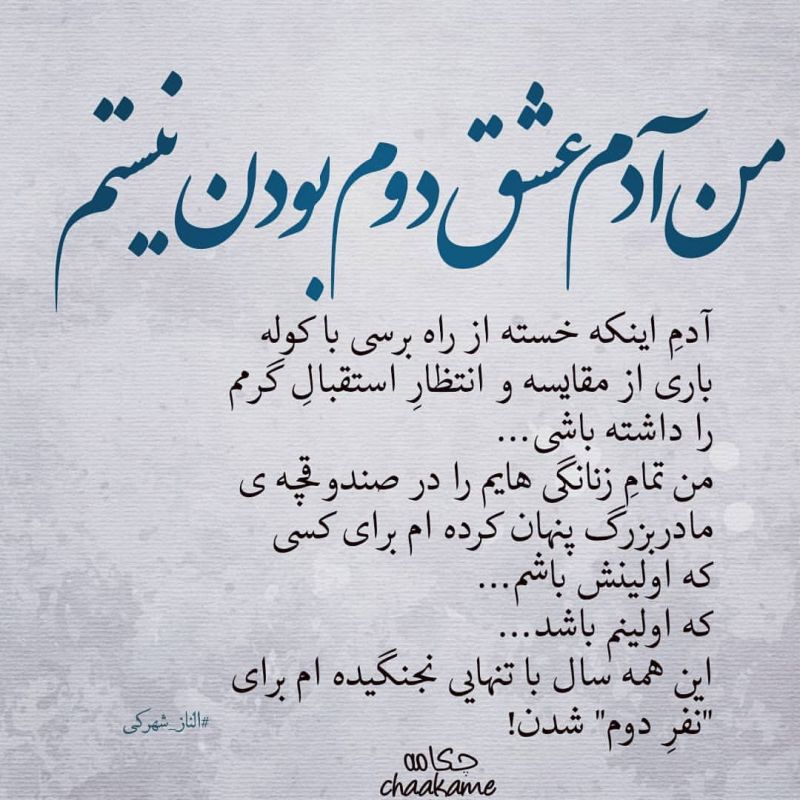 من آدم عشق دوم بودن نیستم
آدمِ اینکه خسته از راه برسی با کوله
باری از مقایسه و انتظارِ استقبالِ گرمم
را داشته باشی...
من تمامِ زنانگی هایم را در صندوقچه ی
مادربزرگ پنهان کرده ام برای کسی
که اولینش باشم...
که اولینم باشد...
این همه سال با تنهایی نجنگیده ام برای
"نفرِ دوم" شدن!
#الناز_شهرکی
چکامه
chaakame